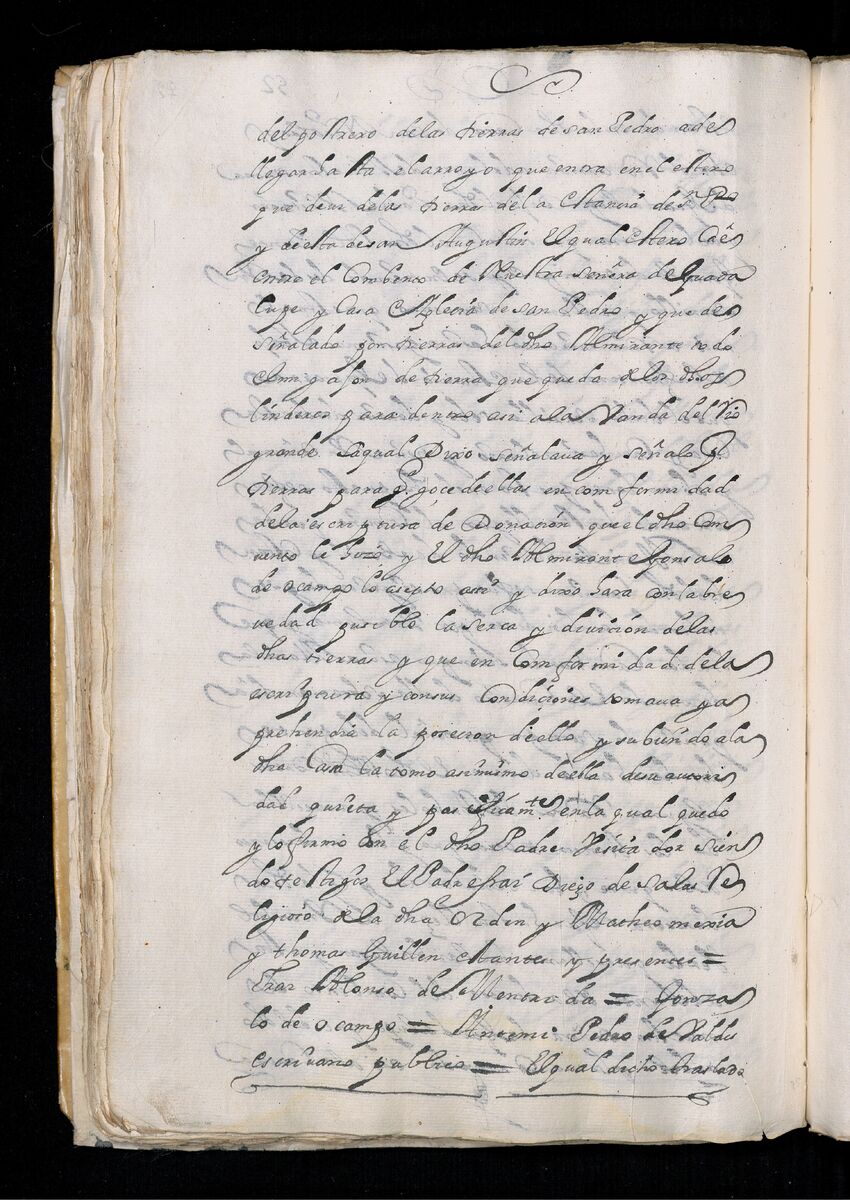 del potrero delas tierras de san Pedro ade
llegar hasta el arroyo que entra en el estero
que deui delas tierras dela Estancia de sn Po
y de esta de san Augustin El qual estero Cae
entre el Combento de Nuestra señora de Guada
lupe y Casa E Yglecia de san Pedro y que de
señalado por tierras del dho Almirante todo
el mi pason de tierra que queda de los dhos
linderos para dentro asi a la Vanda del Rio
grande Laqual Dixo señalaua y señalo Pr
tierras para q goce de ellas en comformidad
dela escriptura de Donacion que el dho Con
uento le hizo y El dho Almirante Gonsalo
de ocampo lo asepto assi y dixo hara con la bre
uedad pusible la serca y diuicion de las
dhas tierras y que en Comformidad de la
escriptura y con sus Condiciones tomaua y a
prehendia la posecion de ello y subiendo a la
dha Casa la tomo asimismo de ella de su autori
dad quieta y pacificamte en la qual quedo
y lo firmo Con el dho Padre Visitador sien
do testigos El Padre frai Diego de salas Re
ligioso de la dha Orden y Matheo mexia
y thomas Guillen estantes y presentes =
Frai Alonso de Mentrida = Gonza
lo de ocampo = Antemi Pedro de Valdes
escriuano publico = El qual dicho traslado